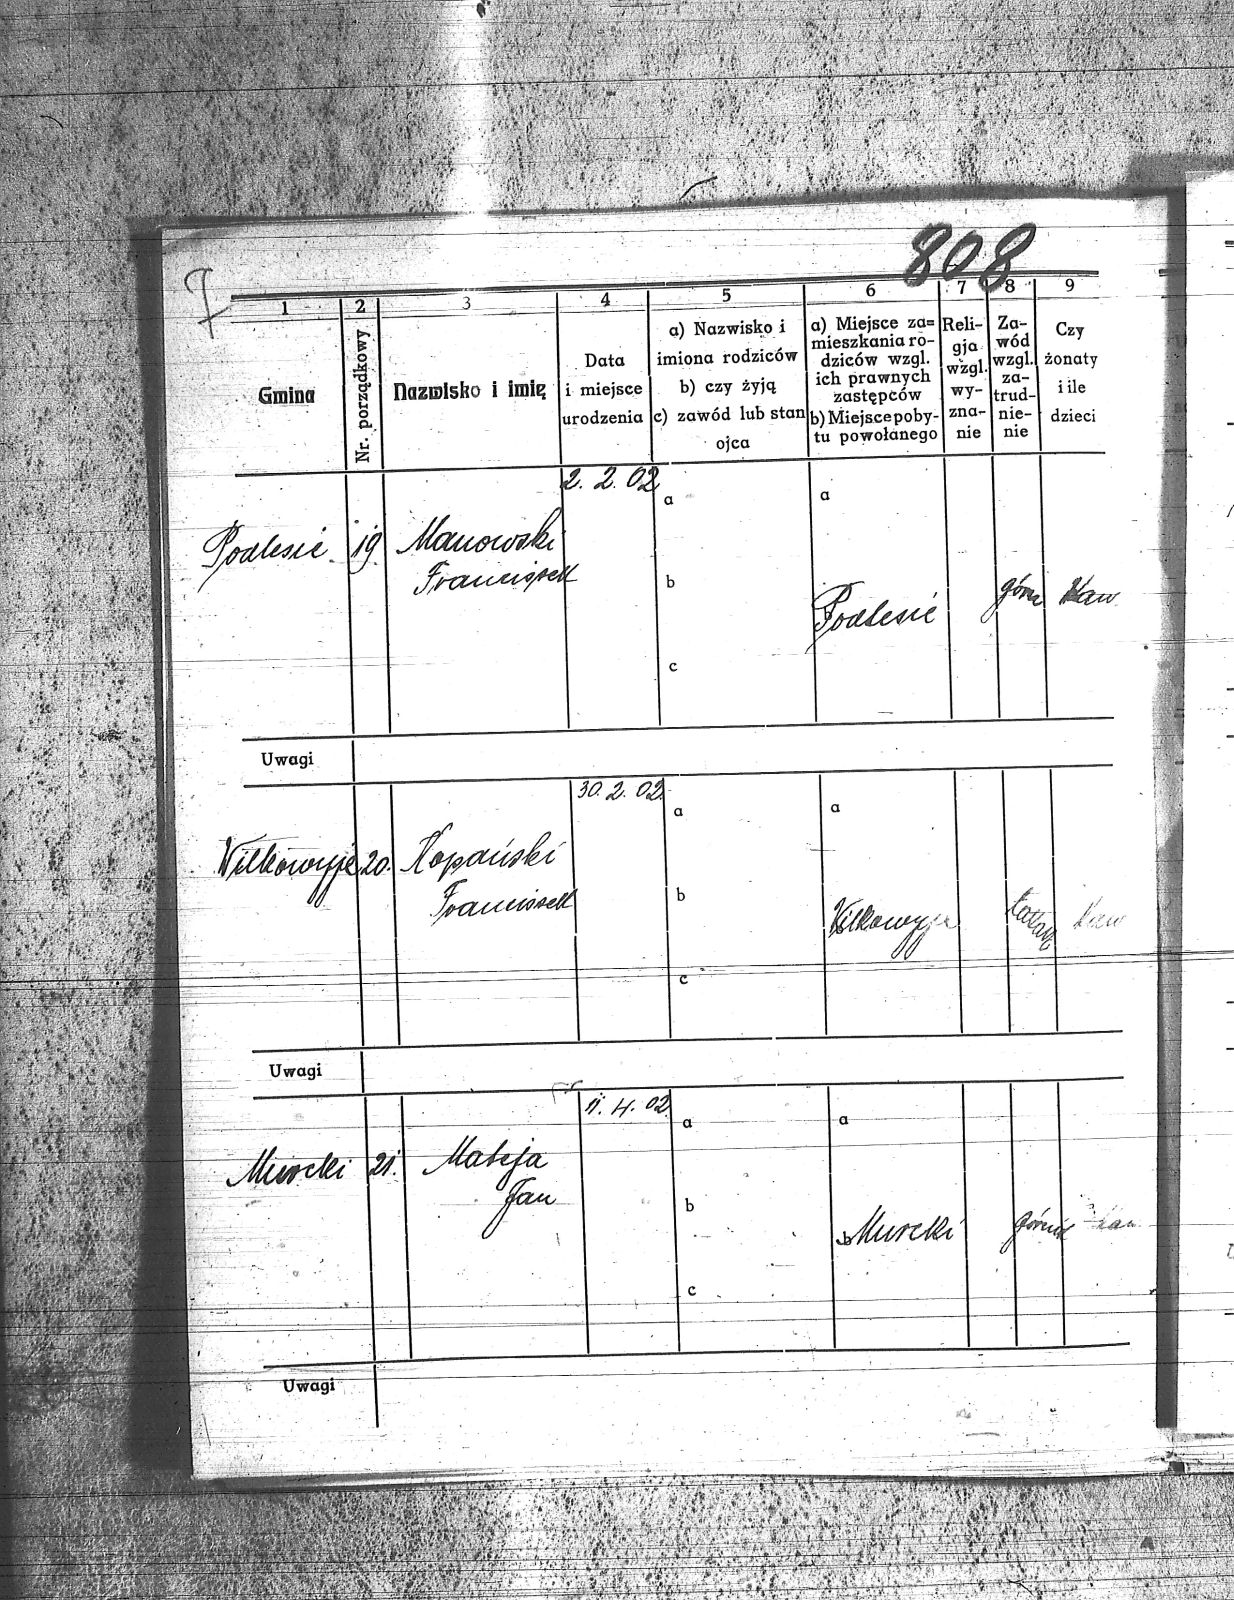 808
7
1 2 3 4 5 6 7 8 9
Gmina
Nr. porządkowy
Nazwisko i imię
Data
i miejsce
urodzenia
a) Nazwisko i
imiona rodziców
b) czy żyją
c) zawód lub stan
ojca
a) Miejsce za=
mieszkania ro-
dziców wzgl.
ich prawnych
zastępców
b) Miejsce poby-
tu powołanego
Reli-
gja
wzgl.
wy-
zna-
nie
Za-
wód
wzgl.
za-
trud-
nie-
nie
Czy
żonaty
i ile
dzieci
2. 2. 02
a a
Podlesie 19 Manowski
Franciszek
b
Podlesie górn Kaw
c
Uwagi
30. 2. 02.
a a
Wilkowyje 20. Kopański
Franciszek
b
Wilkowyje Kaw
c
Uwagi
11. 4. 02
a a
Murcki 21. Mateja
Jan
b
b Murcki górnik kaw
c
Uwagi